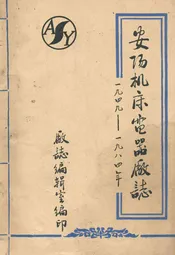 安阳机床电器厰誌
一九四九——一九八四年
厰誌编辑室编印
AY